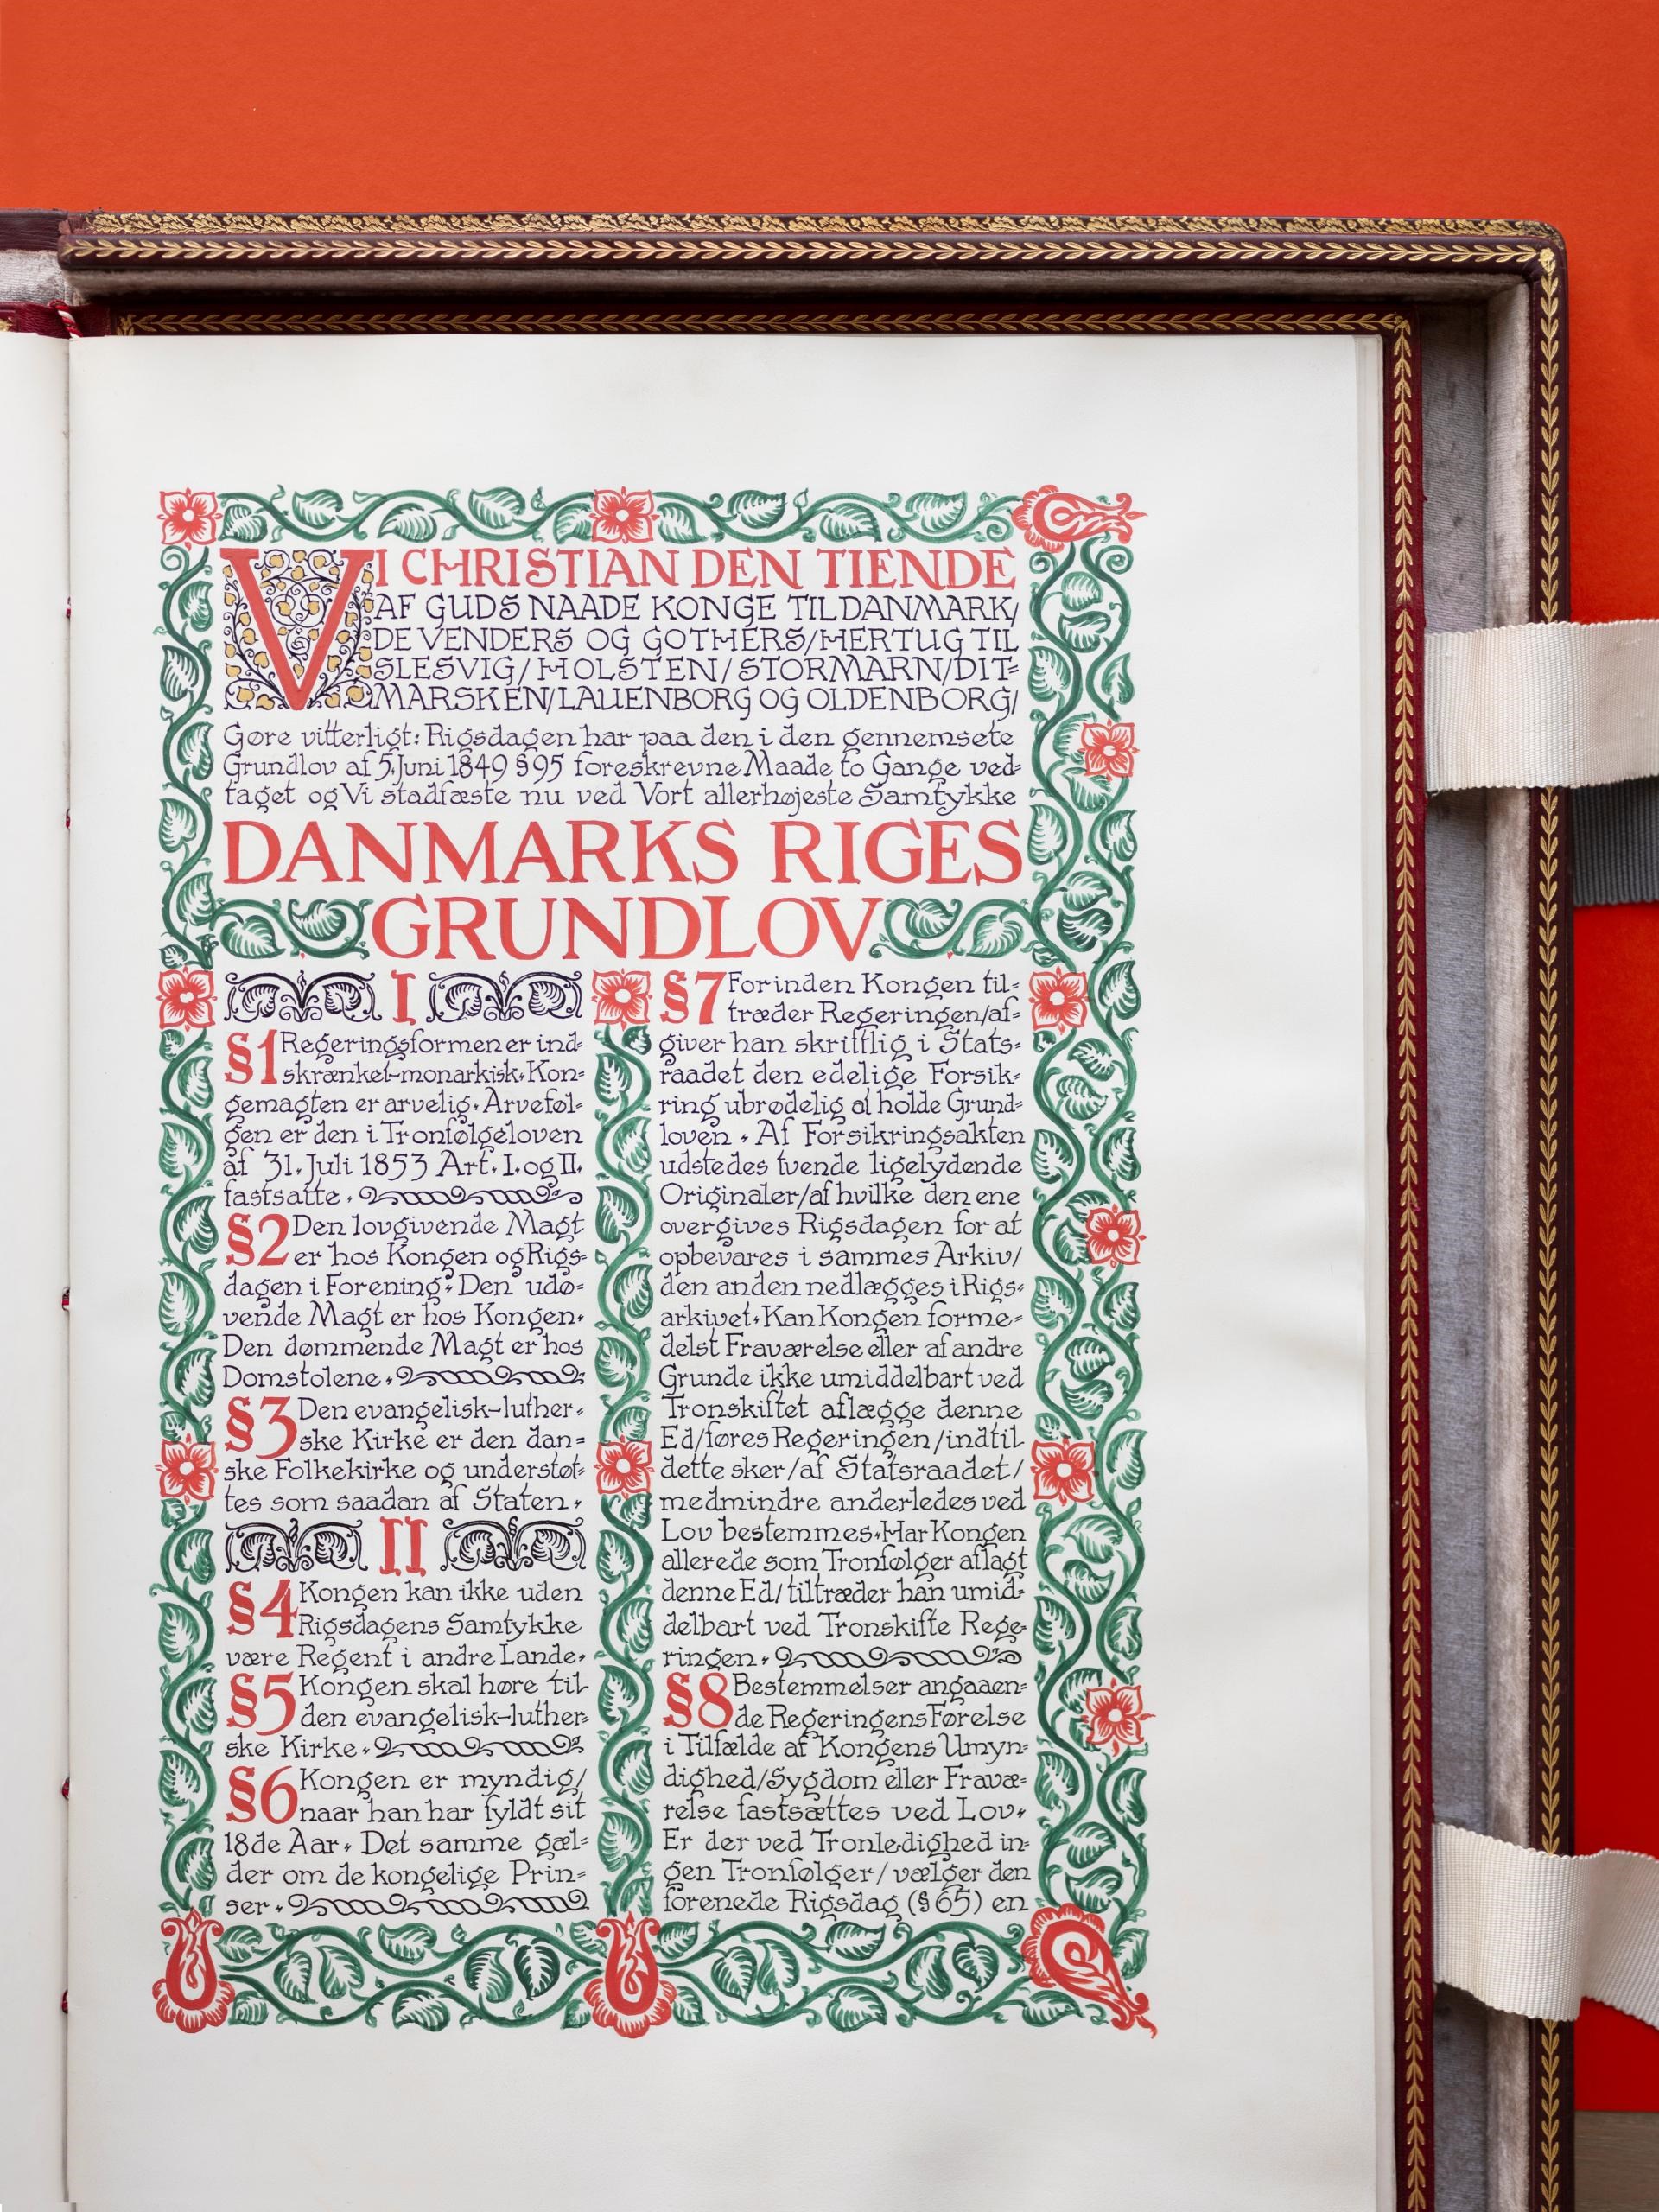 VI CHRISTIAN DEN TIENDE
AF GUDS NAADE KONGE TIL DANMARK/
DE VENDERS OG GOTHERS/HERTUG TIL
SLESVIG/HOLSTEN/STORMARN/DIT=
MARSKEN/LAUENBORG OG OLDENBORG/
Gøre vitterligt: Rigsdagen har paa den i den gennemsete
Grundlov af 5. Juni 1849 § 95 foreskrevne Maade to Gange ved=
taget og Vi stadfæste nu ved Vort allerhøjeste Samtykke
DANMARKS RIGES
GRUNDLOV
I
§1 Regeringsformen er ind=
skrænket-monarkisk. Kon=
gemagten er arvelig. Arveføl=
gen er den i Tronfølgeloven
af 31. Juli 1853 Art. I. og II.
fastsatte.
§2 Den lovgivende Magt
er hos Kongen og Rigs=
dagen i Forening. Den udø=
vende Magt er hos Kongen.
Den dømmende Magt er hos
Domstolene.
§3 Den evangelisk-luther=
ske Kirke er den dan=
ske Folkekirke og understøt=
tes som saadan af Staten.
II
§4 Kongen kan ikke uden
Rigsdagens Samtykke
være Regent i andre Lande.
§5 Kongen skal høre til
den evangelisk-luther=
ske Kirke.
§6 Kongen er myndig/
naar han har fyldt sit
18de Aar. Det samme gæl=
der om de kongelige Prin=
ser.
§7 Forinden Kongen til=
træder Regeringen/af=
giver han skriftlig i Stats=
raadet den edelige Forsik=
ring ubrødelig at holde Grund=
loven. Af Forsikringsakten
udstedes tvende ligelydende
Originaler/af hvilke den ene
overgives Rigsdagen for at
opbevares i sammes Arkiv/
den anden nedlægges i Rigs=
arkivet. Kan Kongen forme=
delst Fraværelse eller af andre
Grunde ikke umiddelbart ved
Tronskiftet aflægge denne
Ed/føres Regeringen/indtil
dette sker/af Statsraadet/
medmindre anderledes ved
Lov bestemmes. Har Kongen
allerede som Tronfølger aflagt
denne Ed/tiltræder han umid=
delbart ved Tronskifte Rege=
ringen.
§8 Bestemmelser angaaen=
de Regeringens Førelse
i Tilfælde af Kongens Umyn=
dighed/Sygdom eller Fravæ=
relse fastsættes ved Lov.
Er der ved Tronledighed in=
gen Tronfølger/vælger den
forenede Rigsdag (§ 65) en